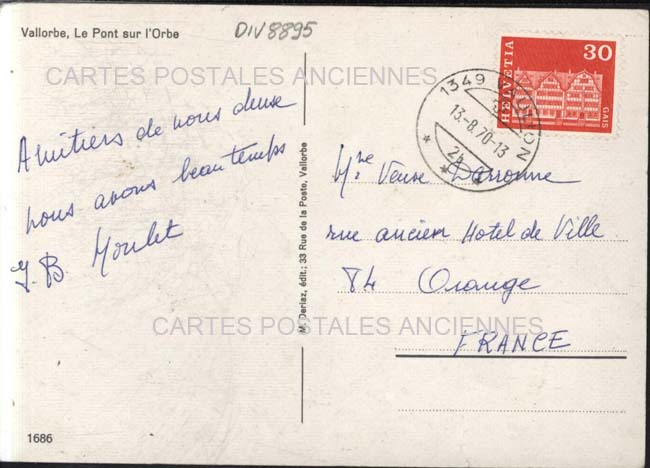 Vallorbe, Le Pont sur l'Orbe
DIV8895
CARTES POSTALES ANCIENNES
30
HELVETIA
GAIS
1349
13.-8.70-13
Amitiers de nous deux
nous avons beau temps
J.B Moulet
M. Deriaz, édit.; 33 Rue de la Poste, Vallorbe
Mme Veuve Daronne
rue ancien Hotel de Ville
84 Orange
CARTES POSTALES ANCIENNES
FRANCE
1686